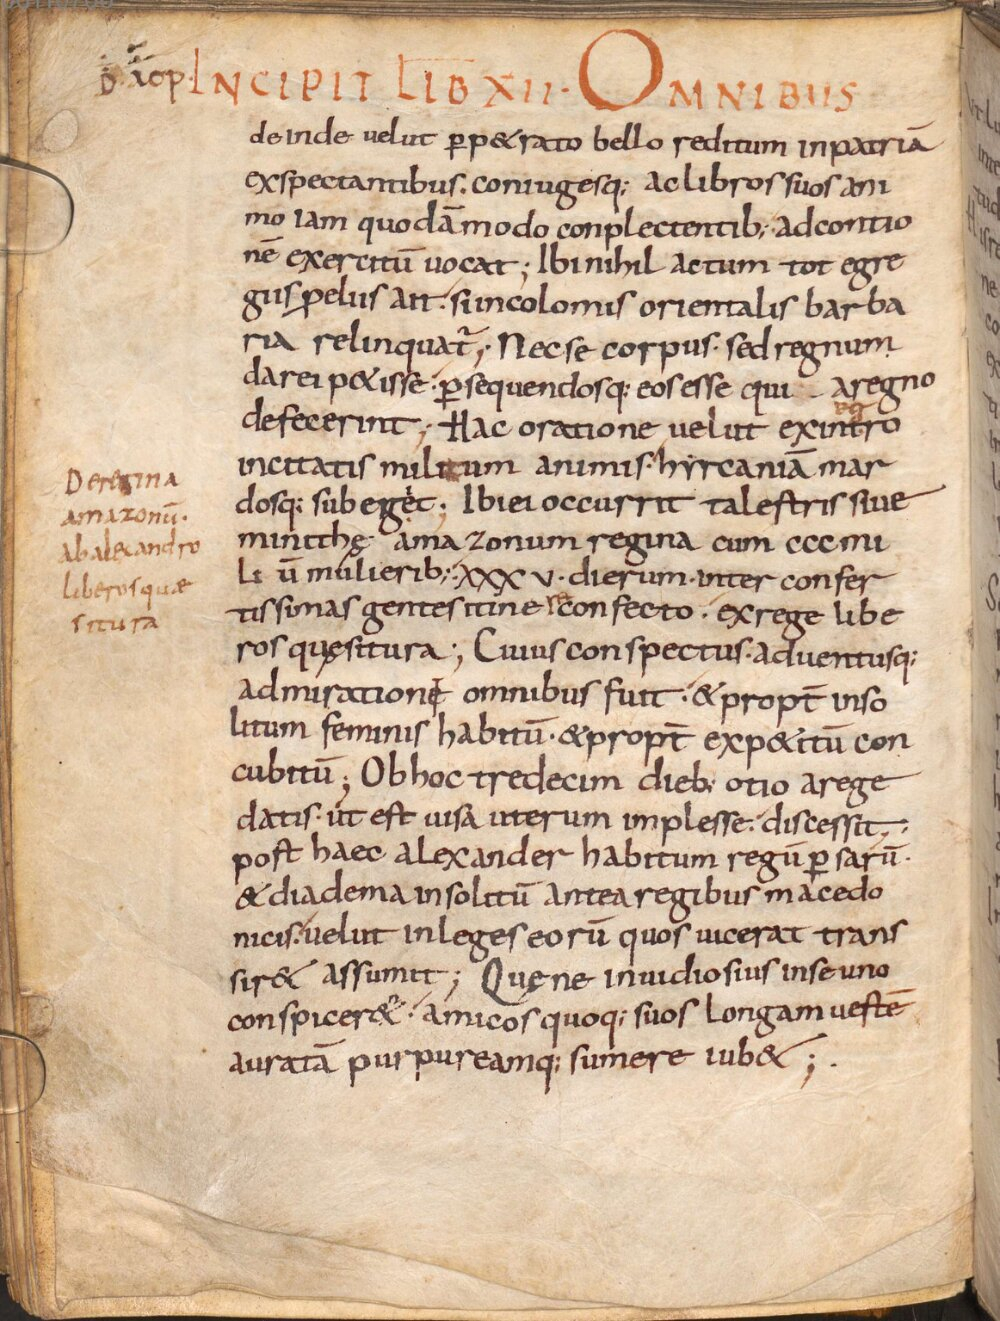 INCIPIT LIB XII · OMNIBUS
deinde velut ꝑp&rato bello reditum inpatriā
exspectantibus. coniugesq; ac libros suos ani
mo iam quodāmodo conplectentib; adcontio
nē exercitū vocat; Ibi nihil actum tot egre
giis ꝓeliis ait. si incolomis orientalis barba
ria relinquat̄; Nec se corpus. sed regnum
darei p&isse. ꝑsequendosq; eos esse qui a regno
defecerint; Hac oratione velut ex intro
incitatis militum animis. hyrcaniā mar
dosq; subegit; Ibi ei occurrit talestris sive
minithę amazonum regina cum ccc mi
li ū mulierib; XXXV. dierum. inter confer
tissimas gentes itinere confecto. ex rege libe
ros quęsitura; Cuius conspectus. adventusq;
admirationi omnibus fuit. & propt̄ inso
litum feminis habitū. & propt̄ exp&itū con
cubitū; Ob hoc tredecim dieb; otio a rege
datis. ut est visa uterum implesse. discessit;
post haec alexander habitum regū ꝑsarū.
& diadema insolitū antea regibus macedo
nicis. velut in leges eorū quos vicerat trans
sir& assumit; Quę ne invidiosius in se uno
conspicer&ur. amicos quoq; suos longam vestē
auratā purpureamq; sumere iub&;.
De regina
amazonū.
ab alexandro
liberos quae
situra